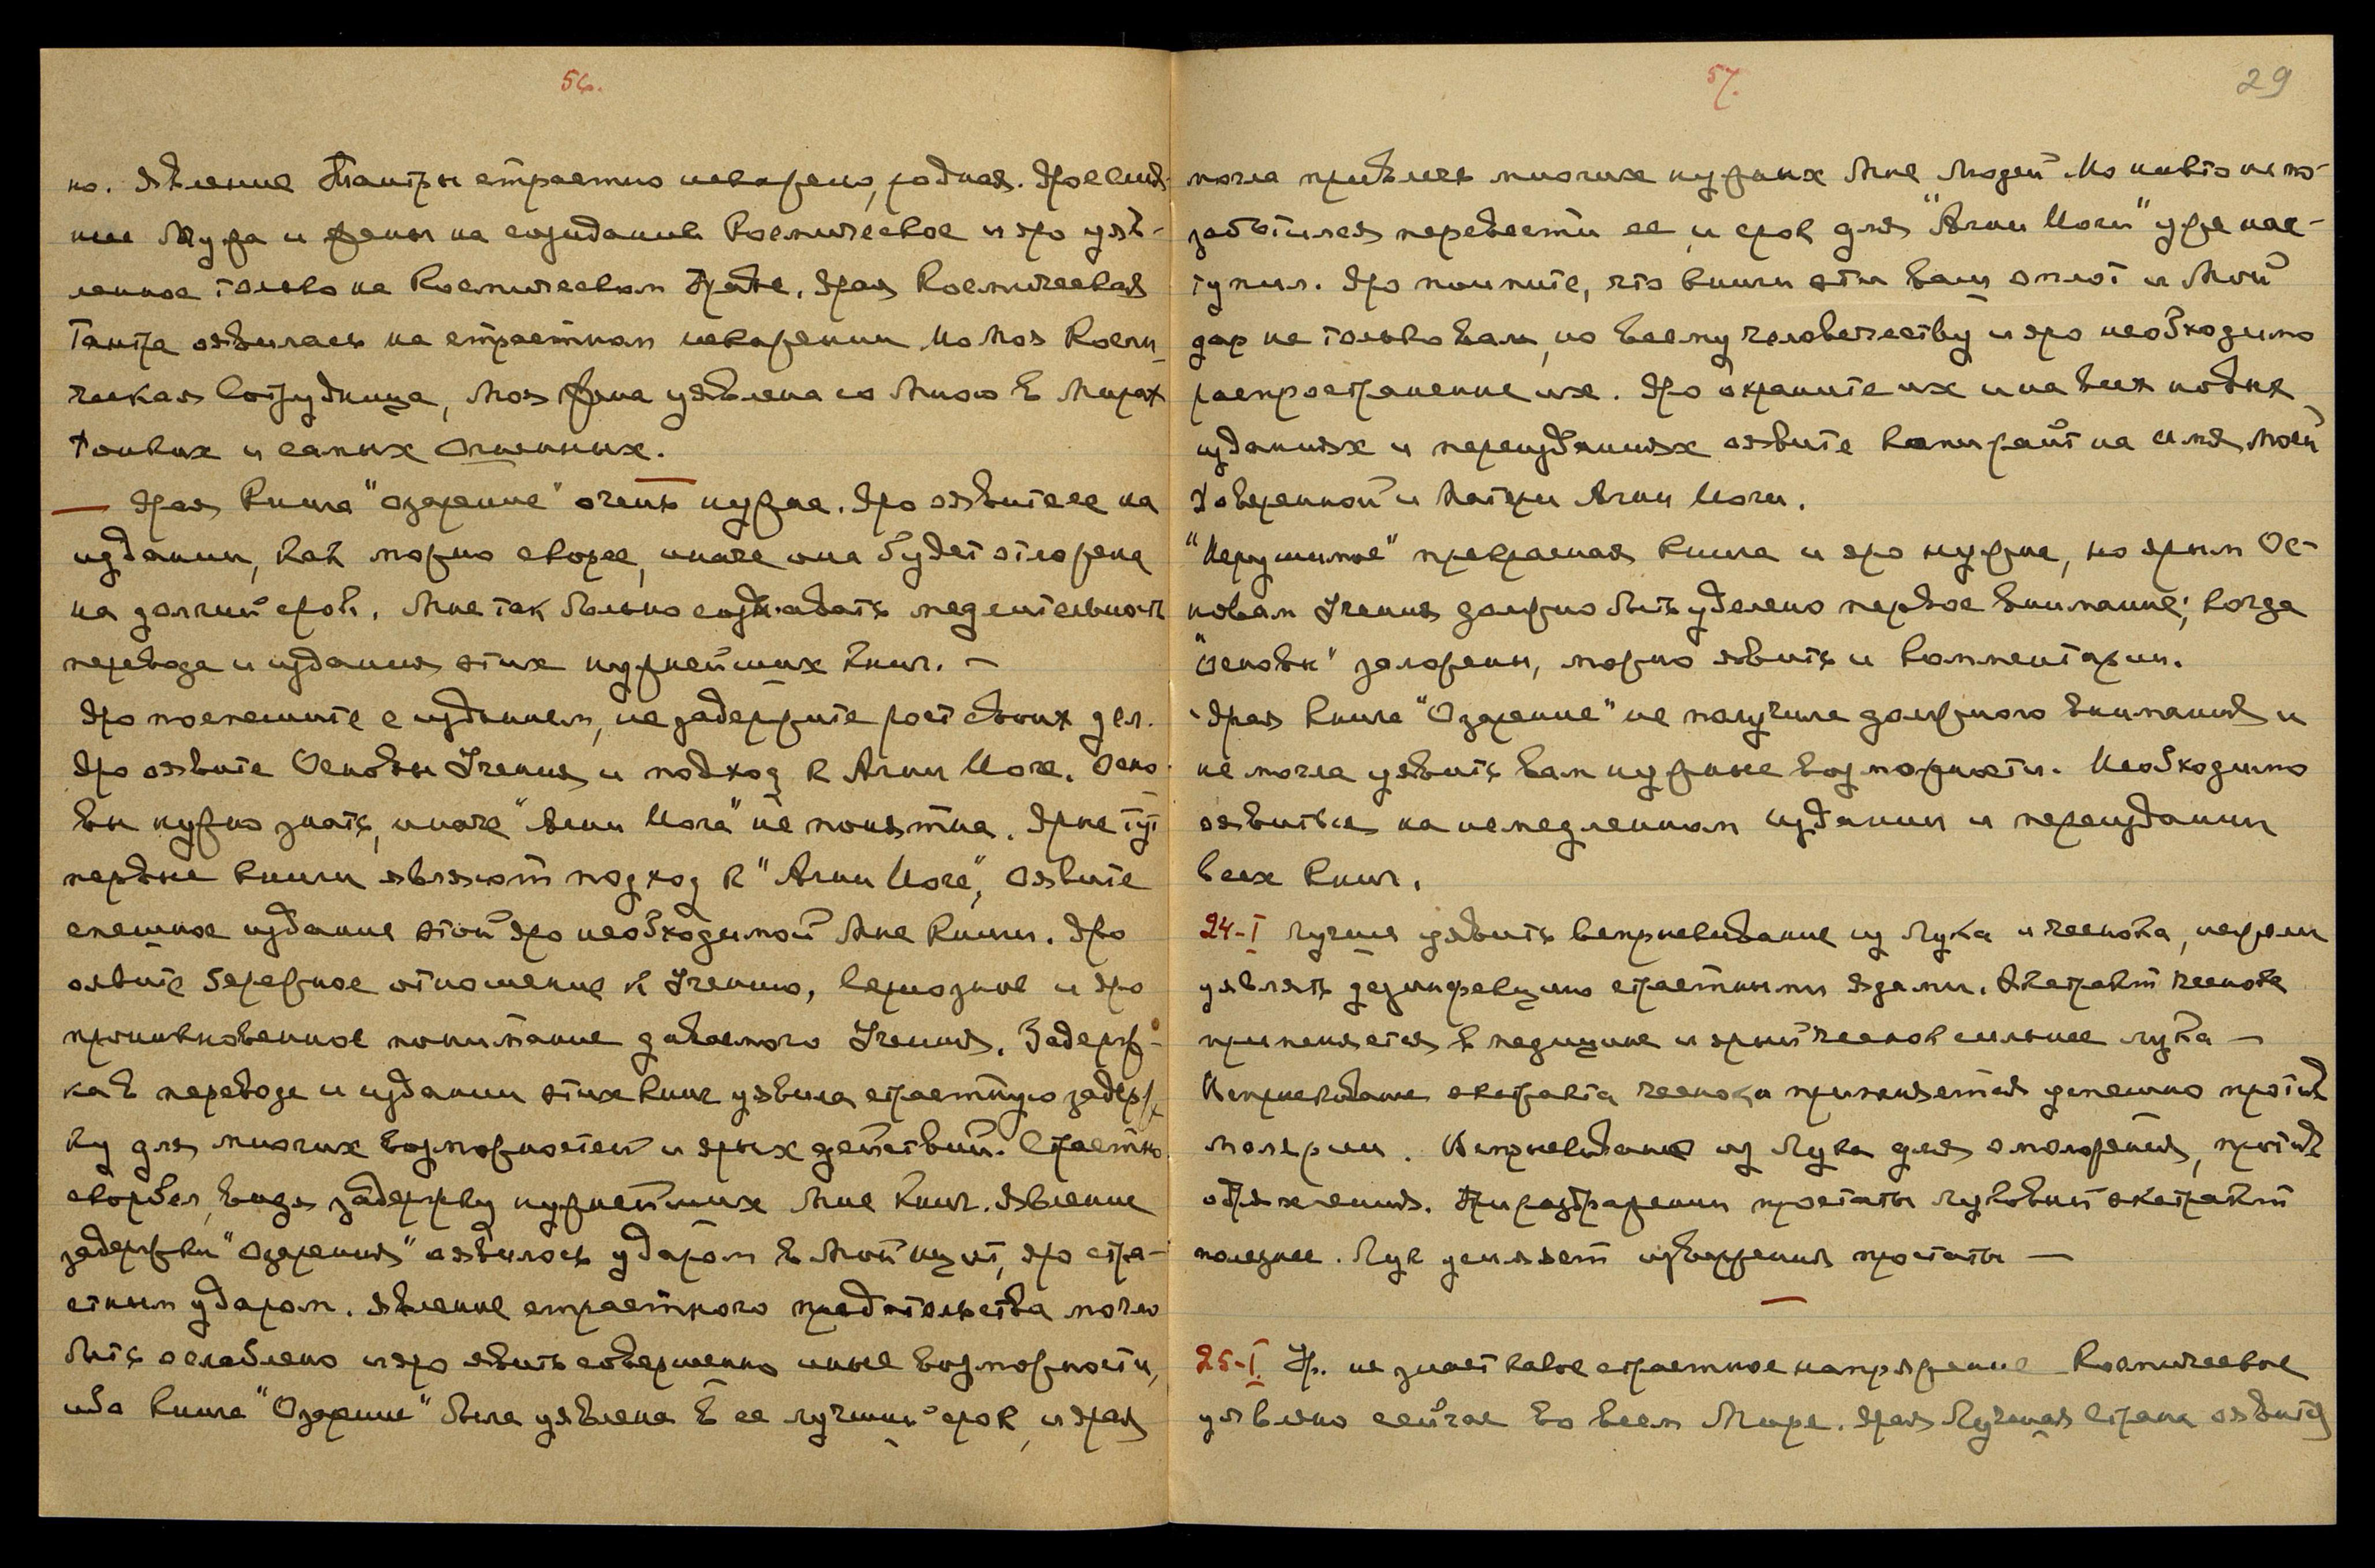 56.
но. Явление Тантры страстно искажено, родная. Яро слия-
ние Мужа и Жены на созидании Космическое и яро уяв-
ленное только на Космическом Праве. Ярая Космическая
Тантра оявилась на страстном искажении. Но Моя Косми-
ческая Сотрудница, Моя Жена уявлена со Мною в Мирах
Тонких и самых Огненных.
— Ярая Книга "Озарение" очень нужна. Яро оявите ее на
издании, как можно скорее, иначе она будет отложена
на долгий срок. Мне так больно сознавать медлительность
перевода и издания этих нужнейших книг. —
Яро поспешите с изданием, не задержите рост своих дел.
Яро оявите Основы Учения и подход к Агни Йоге. Осно-
вы нужно знать, иначе "Агни Йога" не понятна. Ярые тут
первые книги являют подход к "Агни Йоге", Оявите
спешное издание этой яро необходимой Мне книги. Яро
оявите бережное отношение к Учению, серьозное и яро
проникновенное понимание даваемого Учения. Задерж-
ка в переводе и издании этих книг уявила страстную задерж-
ку для многих возможностей и ярых действий. Страстно
скорбел, видя задержку нужнейших Мне книг. Явление
задержки "Озарения" оявилось ударом в Мой щит, яро стра-
стным ударом. Явление страстного предательства могло
быть ослаблено и яро явить совершенно иные возможности,
ибо книга "Озарение" была уявлена в ее лучший срок, и ярая
57.
29
могла привлечь многих нужных Мне людей. Но никто не по-
заботился перевести ее, и срок для "Агни Йоги" уже нас-
тупил. Яро помните, что книги эти ваш оплот и Мой
дар не только вам, но всему человечеству и яро необходимо
распространение их. Яро охраните их и на всех новых
изданиях и переизданиях оявите копирайт на имя Моей
Доверенной и Матери Агни Йоги.
"Нерушимое" прекрасная книга и яро нужна, но ярым Ос-
новам Учения должно быть уделено первое внимание; когда
"Основы" заложены, можно явить и комментарии.
Ярая книга "Озарение" не получила должного внимания и
не могла уявить вам нужные возможности. Необходимо
оявиться на немедленном издании и переиздании
всех книг.
24-I Лучше уявить вспрыскивание из лука и чеснока, нежели
уявлять дезинфекцию страстными ядами. Экстракт чеснока
применяется в медицине и ярый чеснок сильнее лука —
Вспрыскивание экстракта чеснока применяется успешно против
малярии. Вспрыскивание из Лука для омоложения, против
отяжеления. При раздражении простаты луковый экстракт
полезнее. Лук усиляет извержения простаты —
25-I. Ур. не знает какое страстное напряжение Космическое
уявлено сейчас во всем Мире. Ярая Лучшая Страна оявится